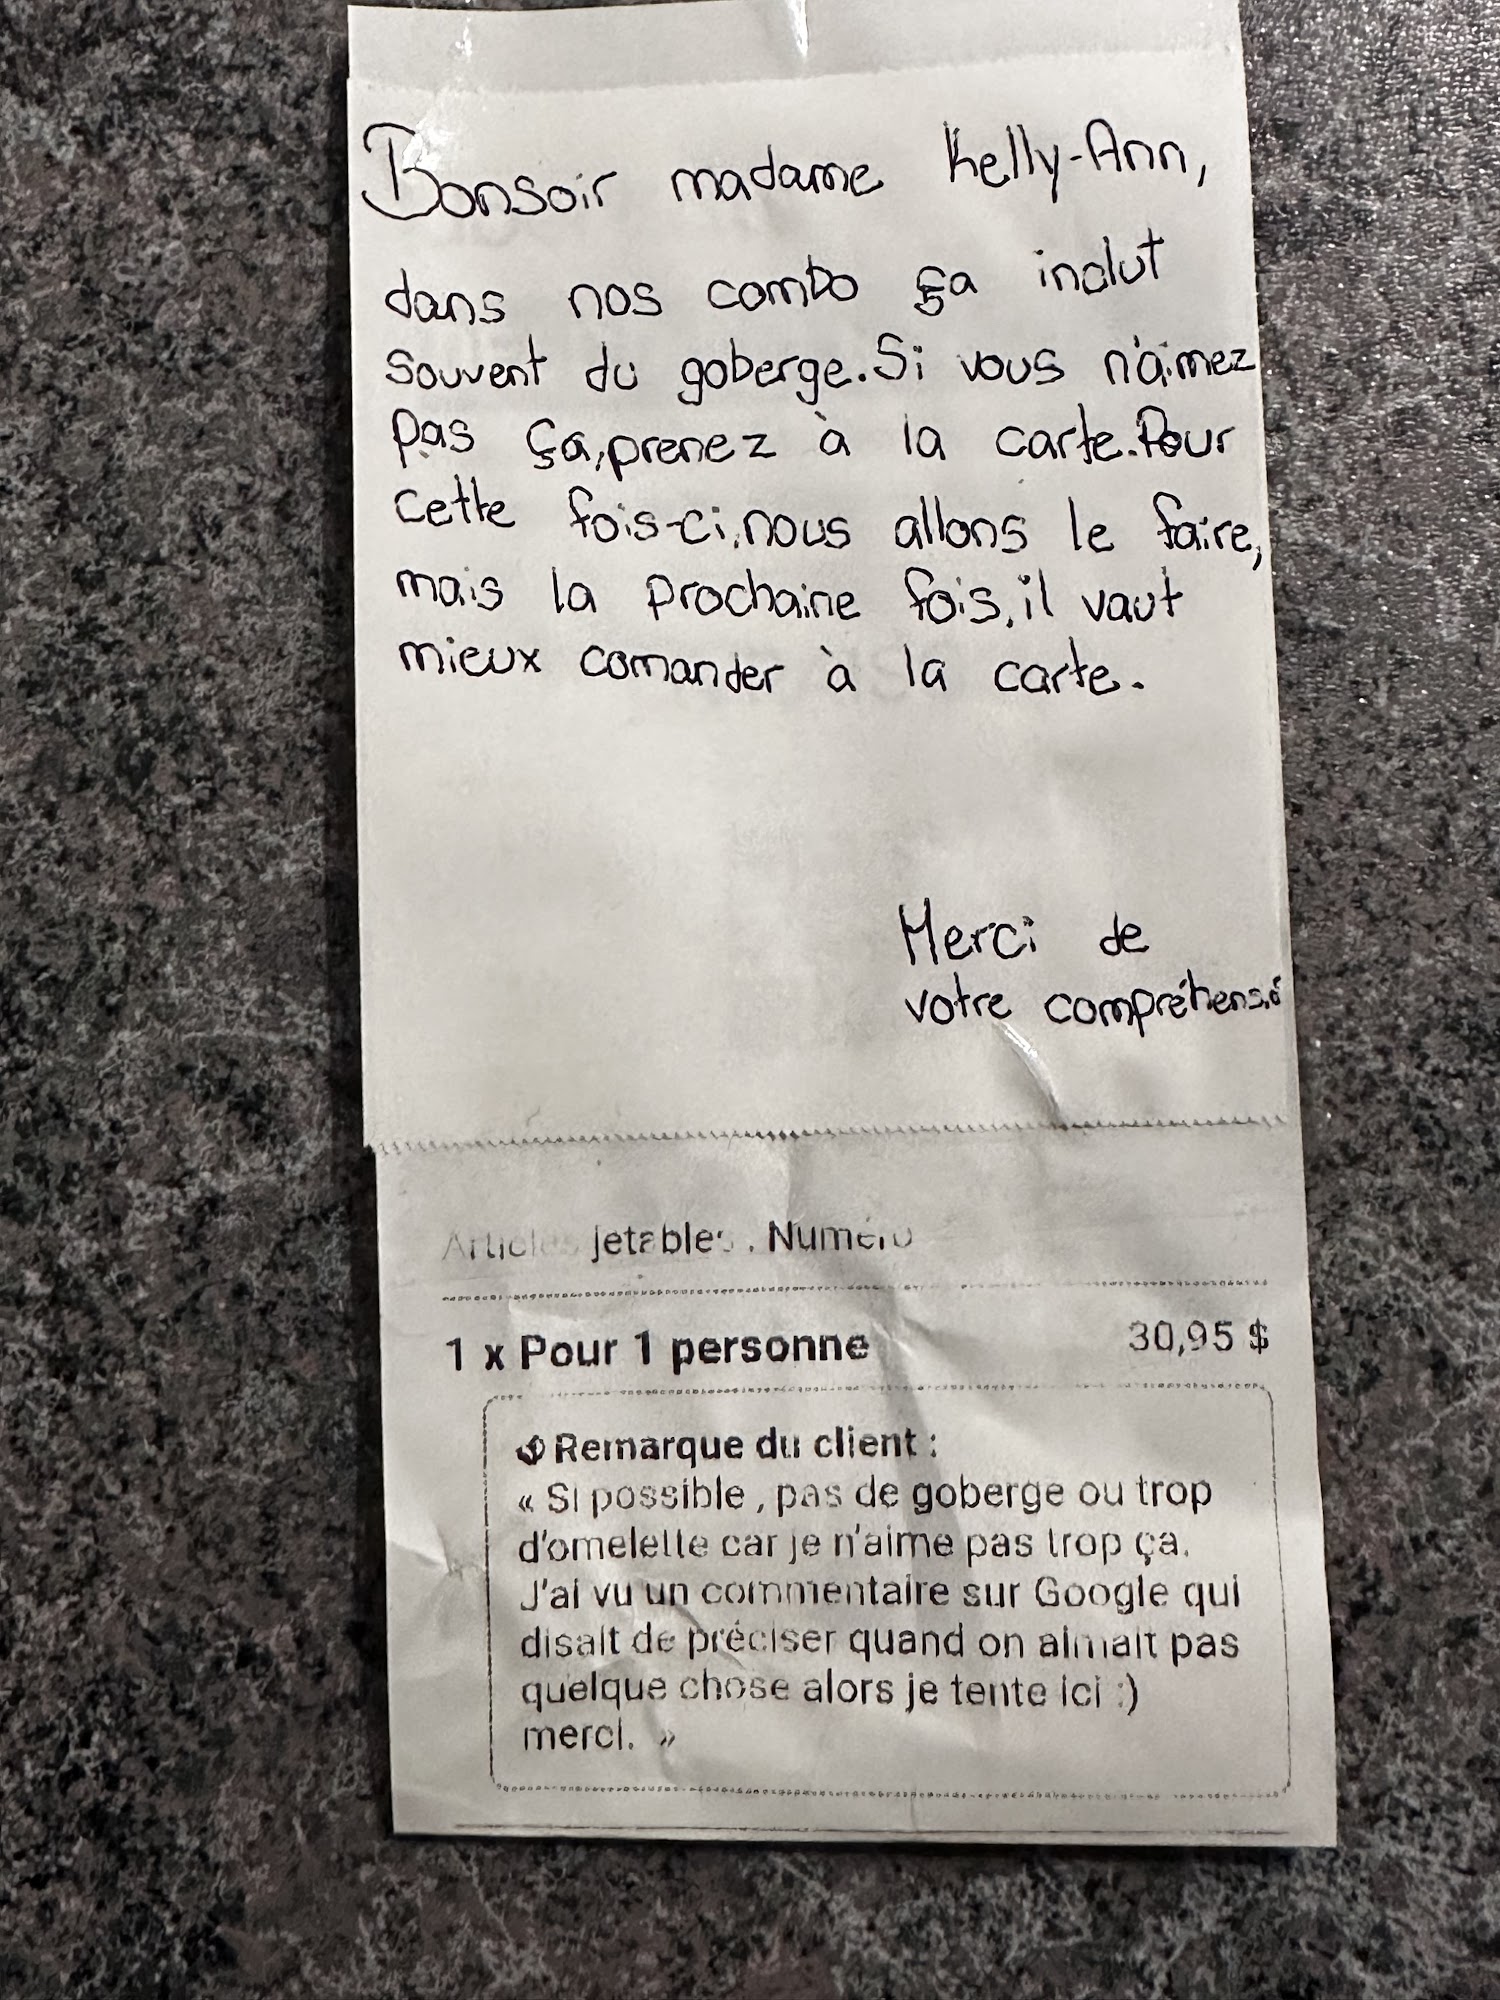 Bonsoir madame Kelly-Ann,
dans nos combo ça inclut
souvent du goberge. Si vous n'aimez
pas ça, prenez à la carte. Pour
cette fois-ci, nous allons le faire,
mais la prochaine fois, il vaut
mieux comander à la carte.
Merci de
votre compréhensió
Articles jetables . Numéro
1 x Pour 1 personne 30,95 $
Remarque du client :
« Si possible , pas de goberge ou trop
d'omelette car je n'aime pas trop ça.
J'ai vu un commentaire sur Google qui
disait de préciser quand on aimait pas
quelque chose alors je tente ici :)
merci. »